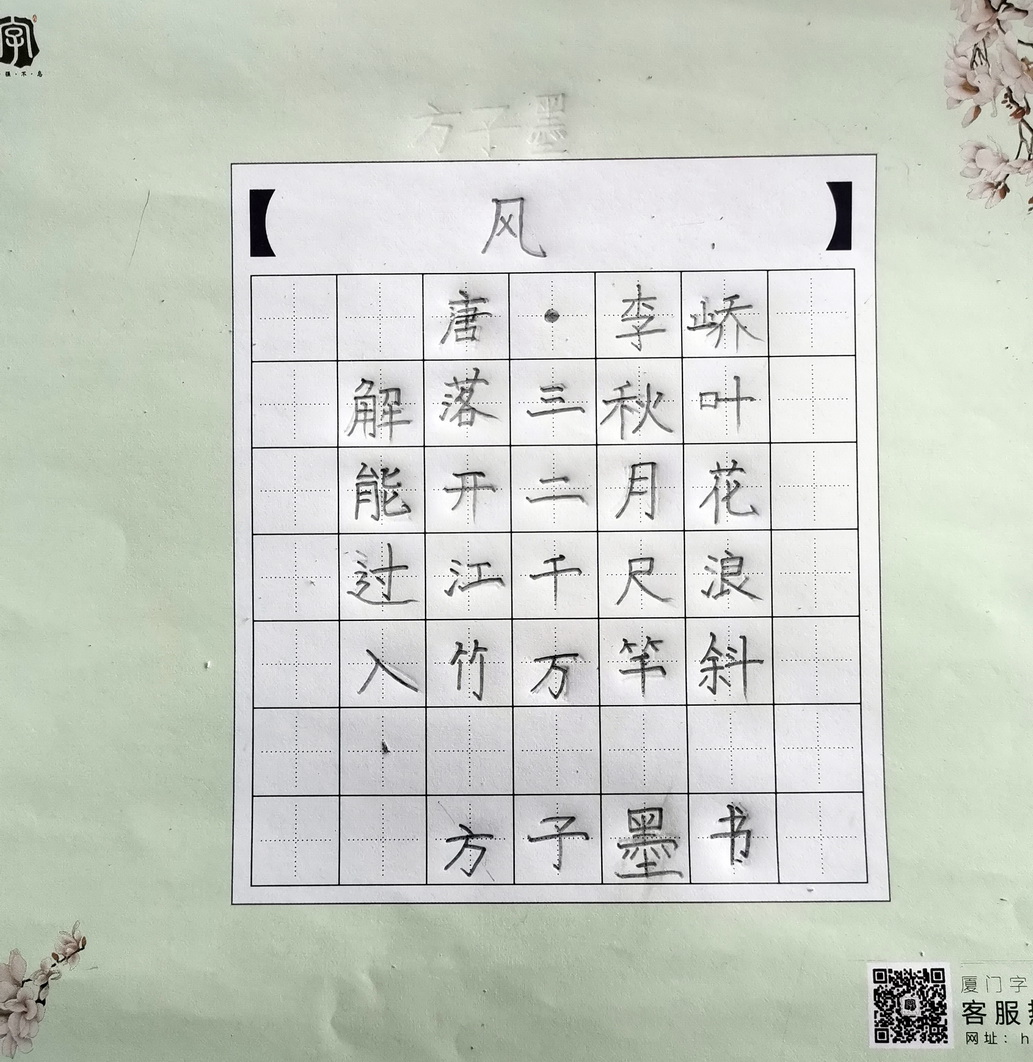 字
方子墨
【风】
唐·李峤
解落三秋叶
能开二月花
过江千尺浪
入竹万竿斜
方子墨书
厦门字
客服热
网址：h